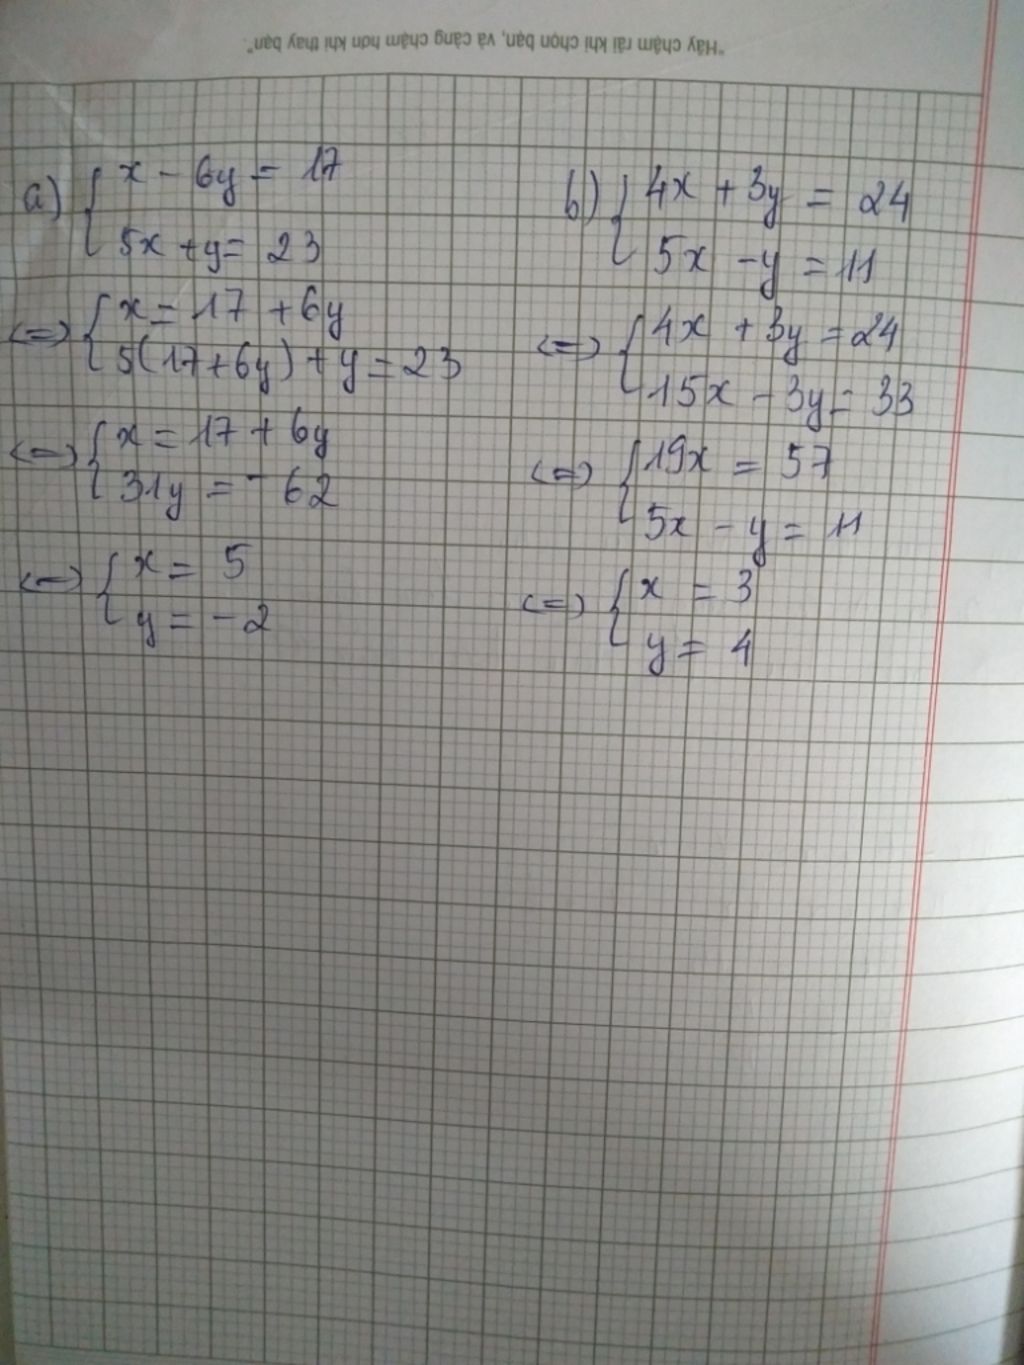 "Hãy chậm rãi khi chọn bạn, và càng chậm hơn khi thay bạn".
a) { x - 6y = 17
5x + y = 23
<=> { x = 17 + 6y
5(17+6y) + y = 23
<=> { x = 17 + 6y
31y = -62
<=> { x = 5
y = -2
b) { 4x + 3y = 24
5x - y = 11
<=> { 4x + 3y = 24
15x - 3y = 33
<=> { 19x = 57
5x - y = 11
<=> { x = 3
y = 4